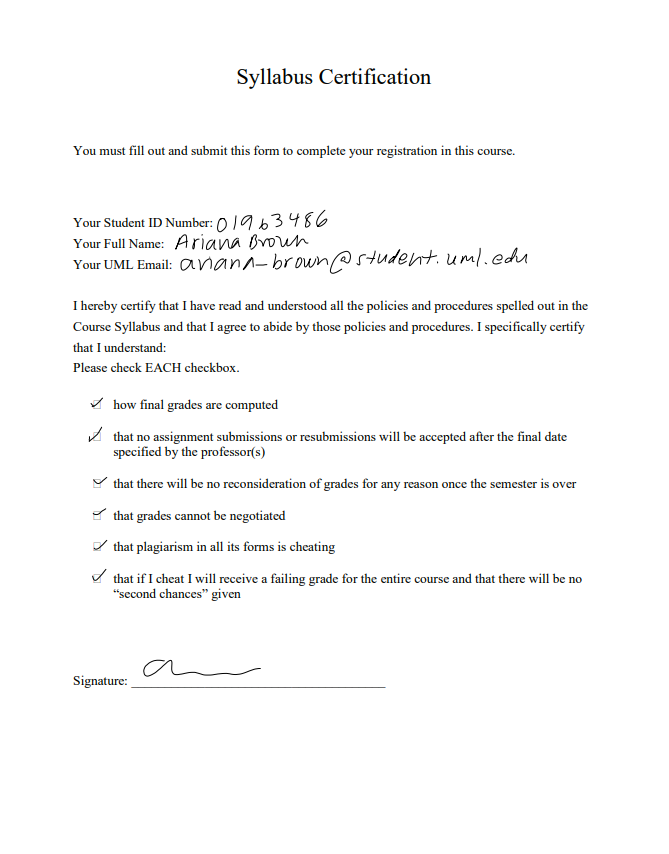 Syllabus Certification
You must fill out and submit this form to complete your registration in this course.
Your Student ID Number: 01963486
Your Full Name: Ariana Brown
Your UML Email: ariana-brown@student.uml.edu
I hereby certify that I have read and understood all the policies and procedures spelled out in the
Course Syllabus and that I agree to abide by those policies and procedures. I specifically certify
that I understand:
Please check EACH checkbox.
how final grades are computed
that no assignment submissions or resubmissions will be accepted after the final date
specified by the professor(s)
that there will be no reconsideration of grades for any reason once the semester is over
that grades cannot be negotiated
that plagiarism in all its forms is cheating
that if I cheat I will receive a failing grade for the entire course and that there will be no
“second chances” given
Signature: